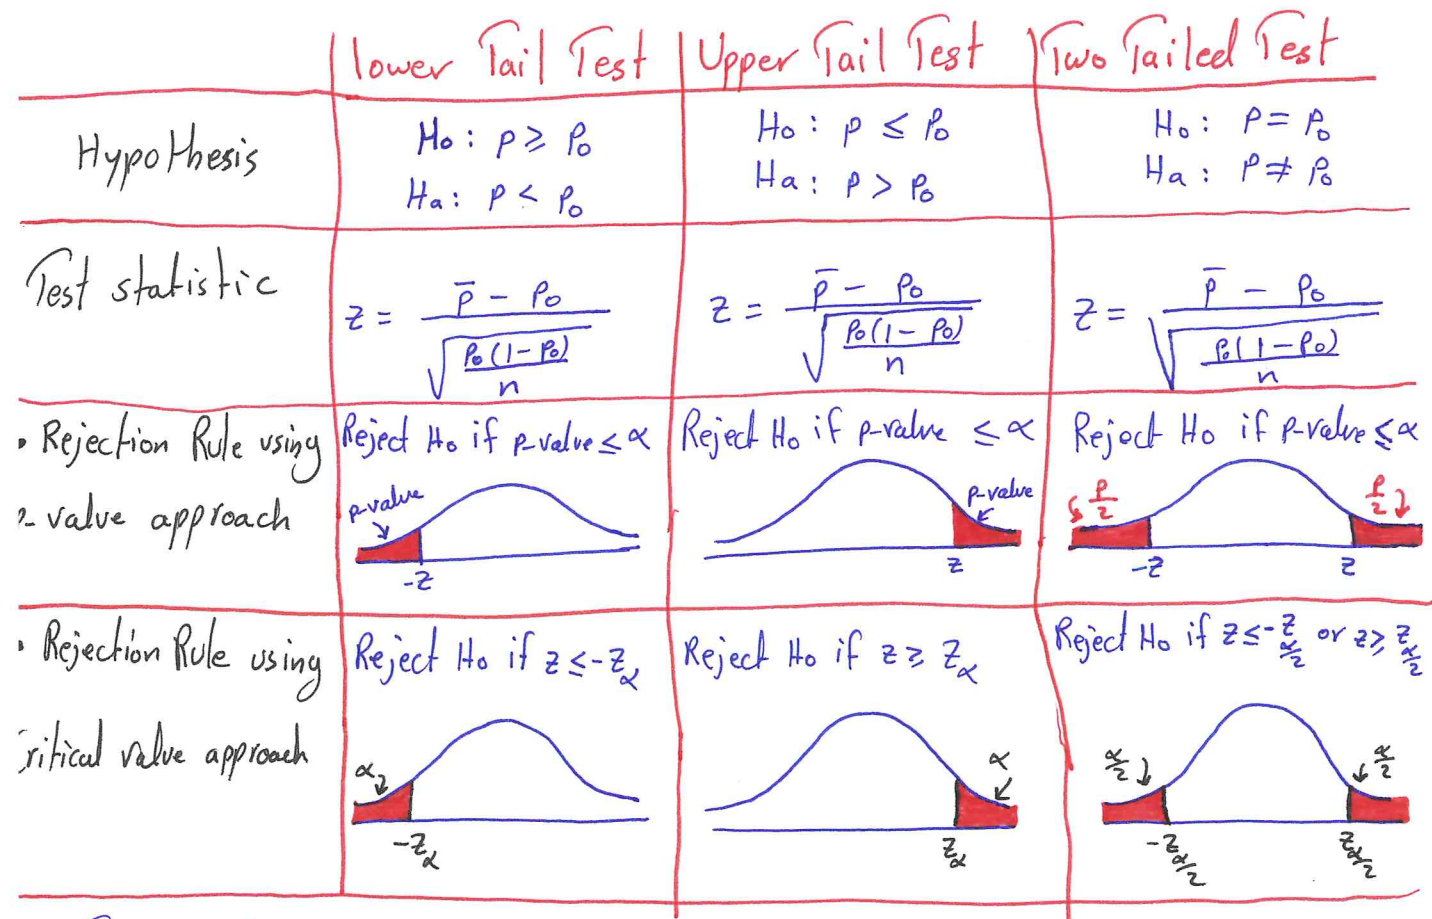 lower Tail Test
Upper Tail Test
Two Tailed Test
Hypothesis
Ho: p ≥ p₀
Ha: p < p₀
Ho: p ≤ p₀
Ha: p > p₀
Ho: p = p₀
Ha: p ≠ p₀
Test statistic
z = (p̄ - p₀) / √(p₀(1-p₀)/n)
z = (p̄ - p₀) / √(p₀(1-p₀)/n)
z = (p̄ - p₀) / √(p₀(1-p₀)/n)
• Rejection Rule using
- value approach
Reject Ho if p-value ≤ α
p-value
-z
Reject Ho if p-value ≤ α
p-value
z
Reject Ho if p-value ≤ α
p/2
p/2
-z
z
• Rejection Rule using
ritical value approach
Reject Ho if z ≤ -z_α
α
-z_α
Reject Ho if z ≥ z_α
α
z_α
Reject Ho if z ≤ -z_α/2 or z ≥ z_α/2
α/2
α/2
-z_α/2
z_α/2